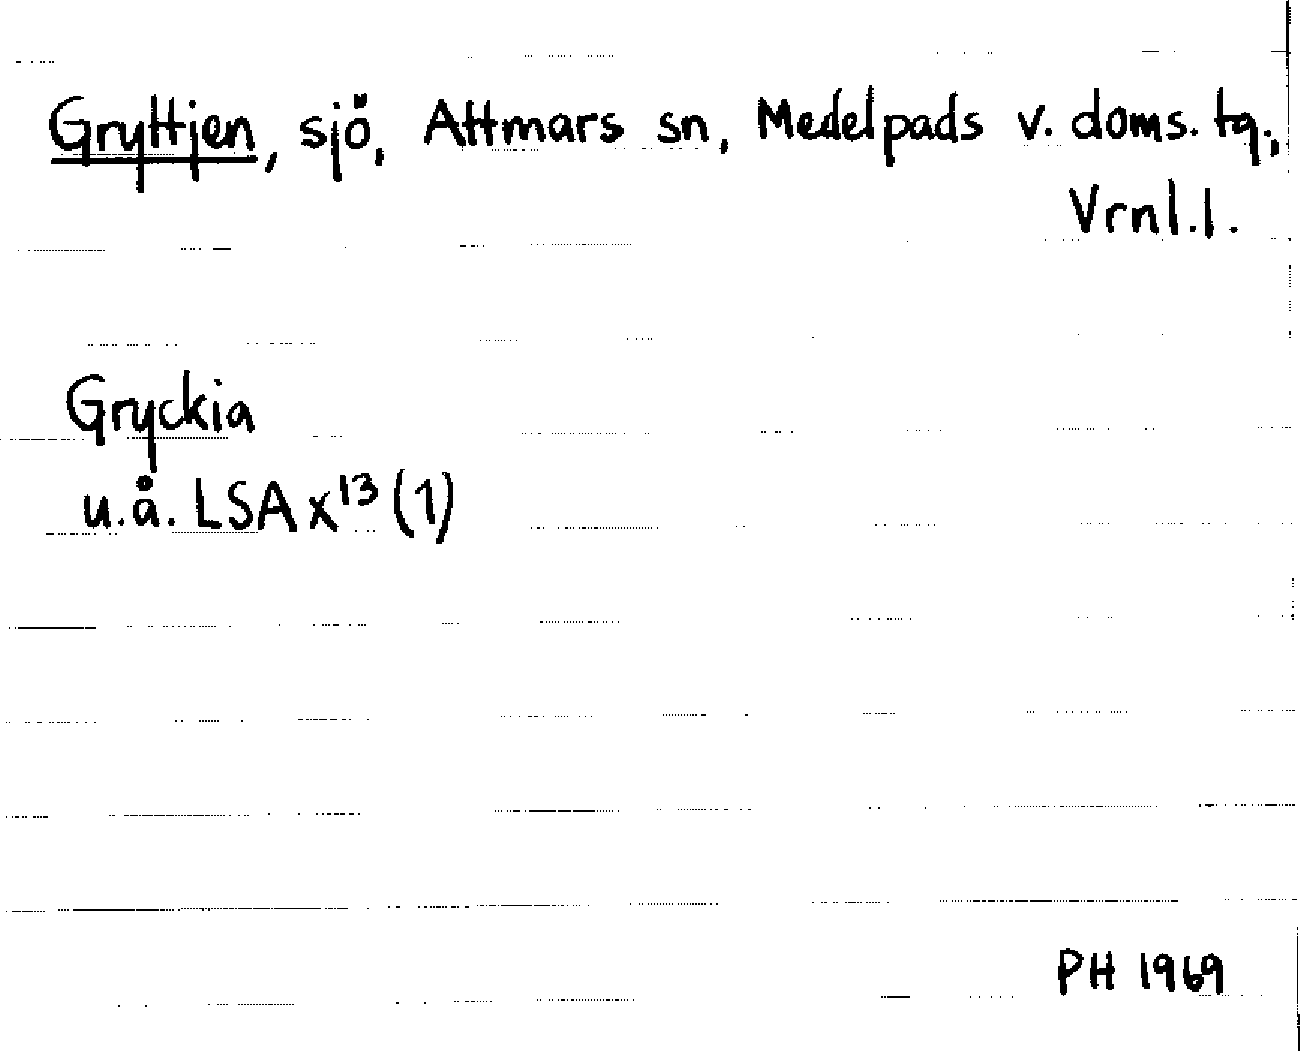 Gryttjen, sjö, Attmars sn, Medelpads v. doms. tg.,
Vrnl.l.
Gryckia
u.å. LSA X¹³ (1)
PH 1969